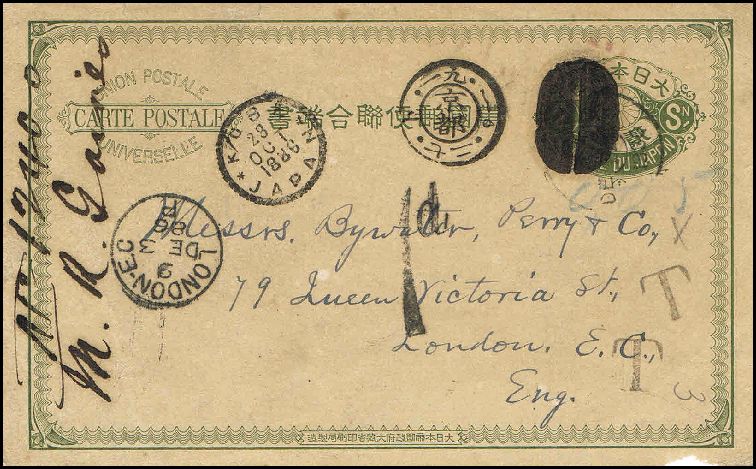 UNION POSTALE
CARTE POSTALE
UNIVERSELLE
萬國郵便聯合端書
大日本
Sn
DU JAPON
KOBE
28
OCT
1886
JAPAN
九
京都
二七
LONDON-E.C
DE 3
86
Messrs. Bywater, Perry & Co,
79 Queen Victoria St.,
London. E. C.,
Eng.
1d
T
T
3
M. R. Gaines
大日本帝國政府大蔵省印刷局製造